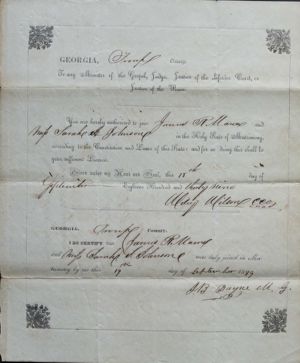 GEORGIA, Troup County.
To any Minister of the Gospel, Judge, Justice of the Inferior Court, or
Justice of the Peace:
You are hereby authorized to join James R. and
Miss Sarah A Johnson in the Holy State of Matrimony,
according to the Constitution and Laws of this State; and for so doing this shall be
your sufficient License.
Given under my Hand and Seal, this 18th day of
September Eighteen Hundred and thirty nine
Wilson CCO
GEORGIA, Troup County.
I DO CERTIFY that James R.
and Miss Sarah A Johnson were duly joined in Ma-
trimony by me this 19th day of September 1839
Payne M. G.